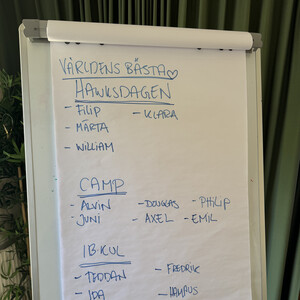 VÄRLDENS BÄSTA♡
HAWKSDAGEN
- FILIP - KLARA
- MÄRTA
- WILLIAM
CAMP
- ALVIN - DOUGLAS - PHILIP
- JUNI - AXEL - EMIL
IB-KUL
- TEODAN - FREDRIK
- IDA - HAMPUS